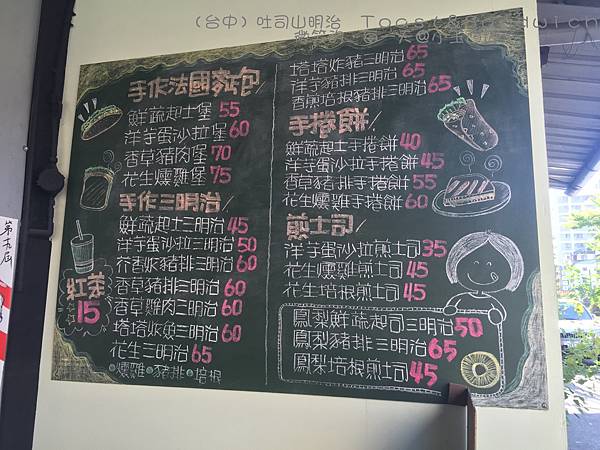 (台中) 吐司山明治 Toast&Sandwich
手作法國麵包
鮮蔬起士堡 55
洋芋蛋沙拉堡 60
香草豬肉堡 70
花生燻雞堡 75
手作三明治
鮮蔬起士三明治 45
洋芋蛋沙拉三明治 50
花香炸豬排三明治 60
香草豬排三明治 60
香草雞肉三明治 60
塔塔炸魚三明治 60
花生三明治 65
燻雞 豬排 培根
紅茶
15
塔塔炸豬三明治 65
洋芋豬排三明治 65
香煎培根豬排三明治 65
手捲餅
鮮蔬起士手捲餅 40
洋芋蛋沙拉手捲餅 45
香草豬排手捲餅 55
花生燻雞手捲餅 60
煎土司
洋芋蛋沙拉煎土司 35
花生燻雞煎土司 45
花生培根煎土司 45
鳳梨鮮蔬起司三明治 50
鳳梨豬排三明治 65
鳳梨培根煎土司 45